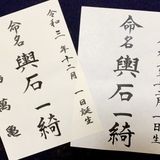 令和三年十二月一日誕生
命名 輿石一綺
萬亀
命名 輿石一綺